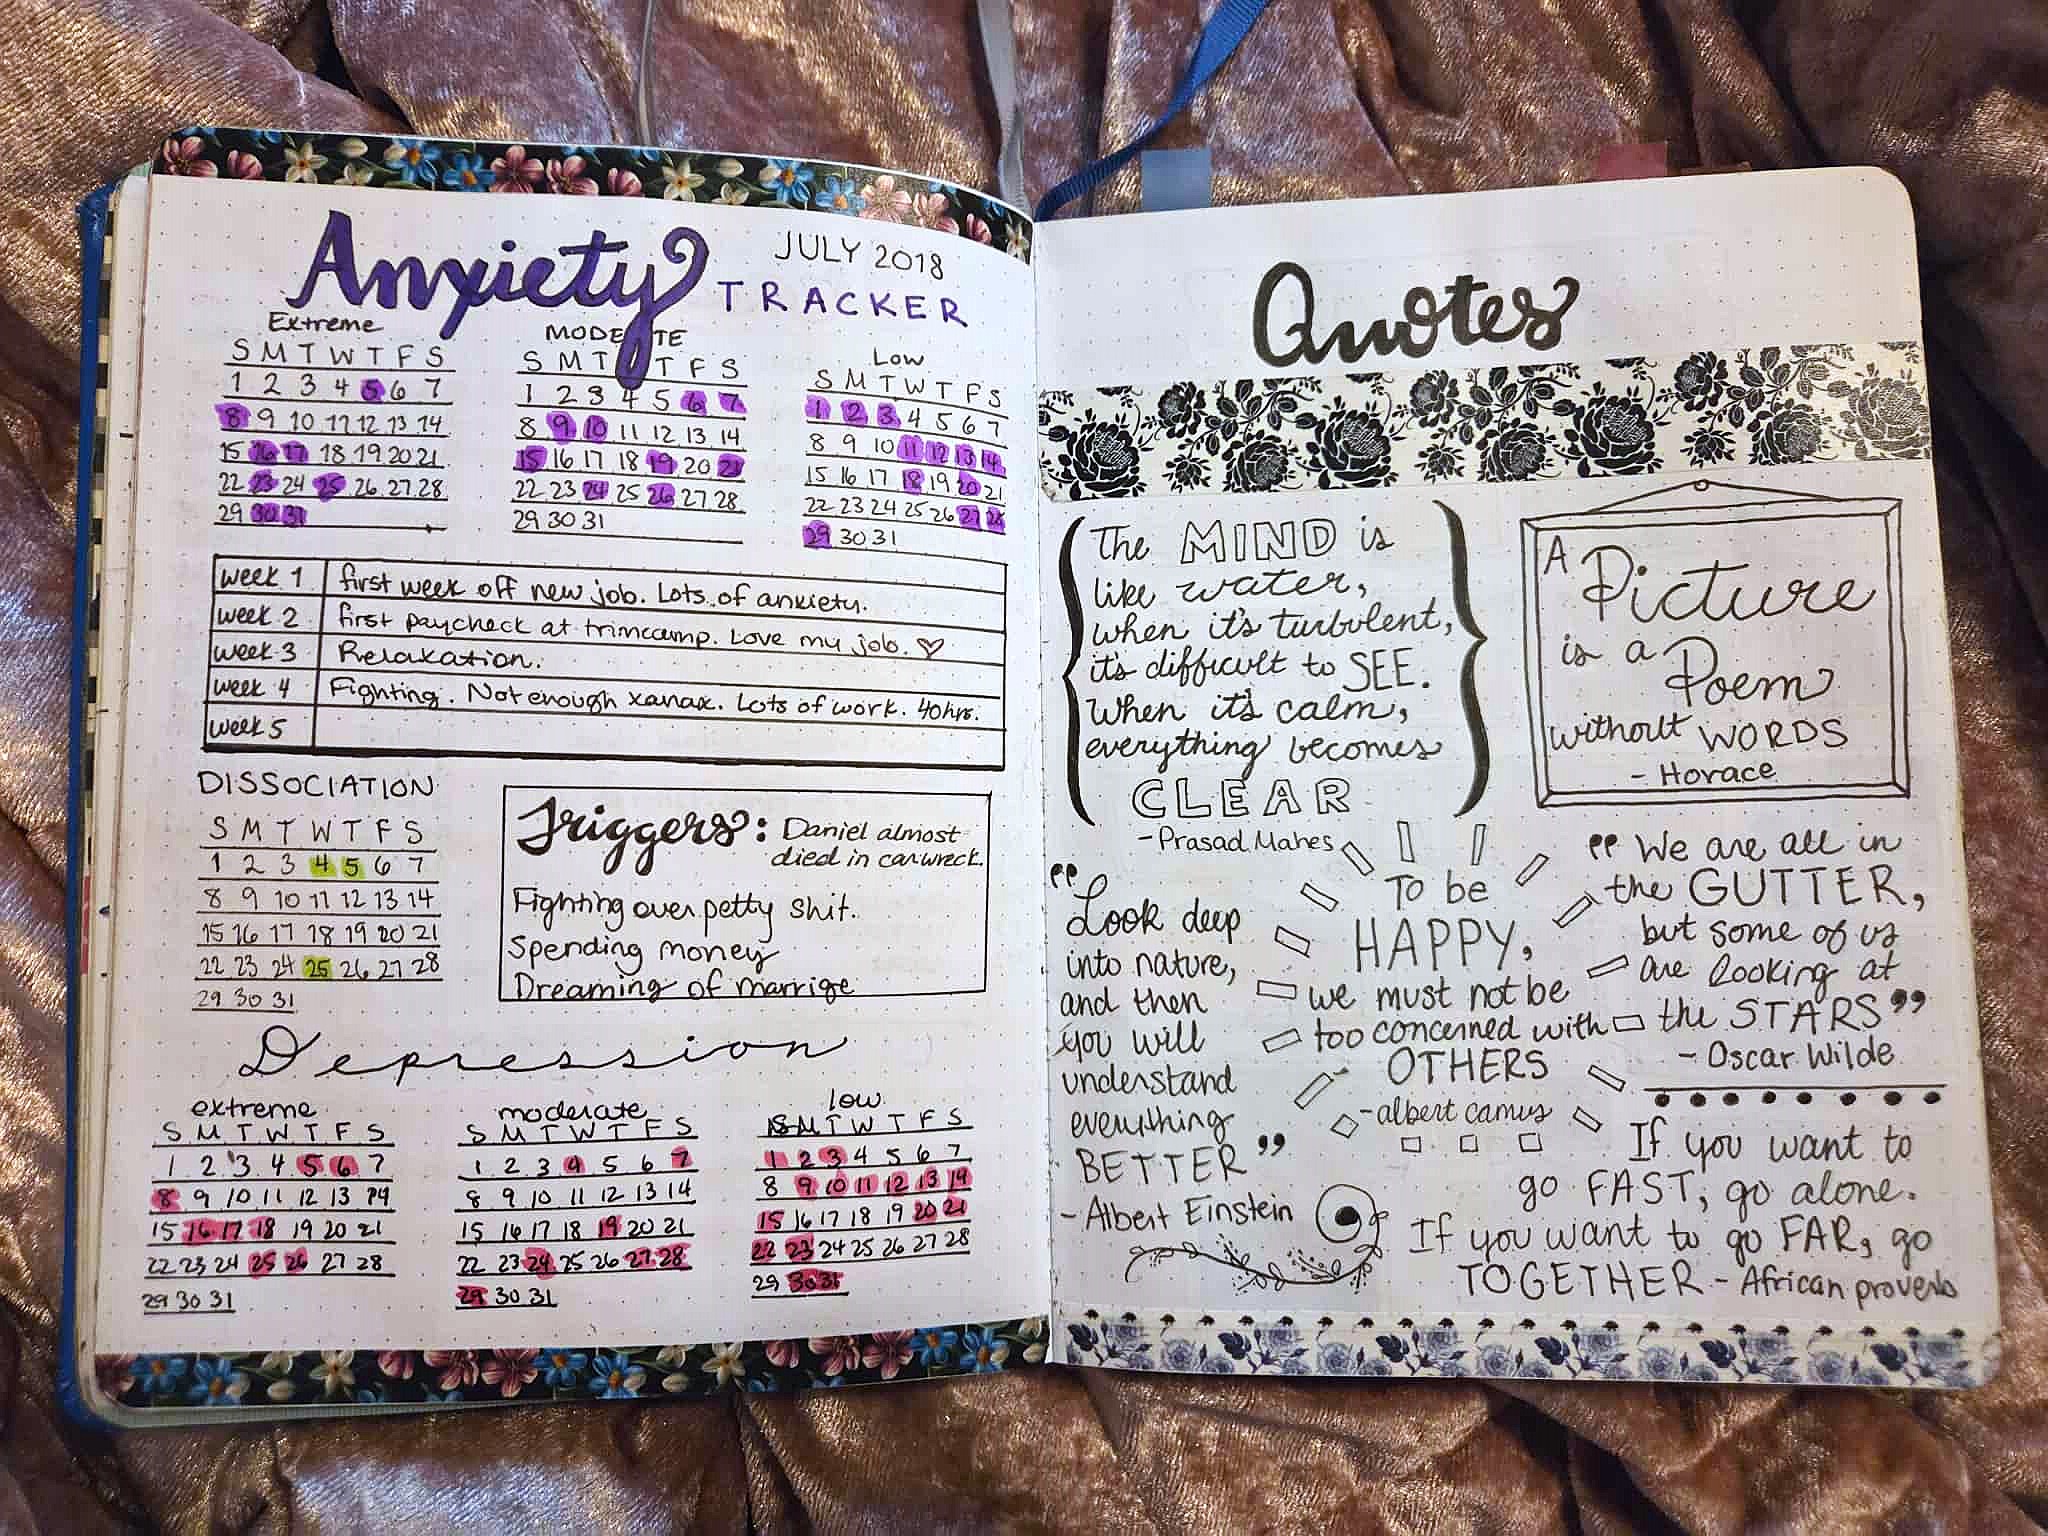 Anxiety
JULY 2018
TRACKER
Extreme
S M T W T F S
1 2 3 4 5 6 7
8 9 10 11 12 13 14
15 16 17 18 19 20 21
22 23 24 25 26 27 28
29 30 31
S M T T F S
1 2 3 4 5 6 7
8 9 10 11 12 13 14
15 16 17 18 19 20 21
22 23 24 25 26 27 28
29 30 31
Low
S M T W T F S
1 2 3 4 5 6 7
8 9 10 11 12 13 14
15 16 17 18 19 20 21
22 23 24 25 26 27 28
29 30 31
week 1 first week off new job. Lots of anxiety.
week 2 first paycheck at trimcamp. Love my job. ♡
week 3 Relaxation.
week 4 Fighting. Not enough xanax. Lots of work. 40hrs.
week 5
DISSOCIATION
S M T W T F S
1 2 3 4 5 6 7
8 9 10 11 12 13 14
15 16 17 18 19 20 21
22 23 24 25 26 27 28
29 30 31
Triggers: Daniel almost
died in car wreck.
Fighting over petty shit.
Spending money
Dreaming of marrige
Depression
extreme
S M T W T F S
1 2 3 4 5 6 7
8 9 10 11 12 13 14
15 16 17 18 19 20 21
22 23 24 25 26 27 28
29 30 31
moderate
S M T W T F S
1 2 3 4 5 6 7
8 9 10 11 12 13 14
15 16 17 18 19 20 21
22 23 24 25 26 27 28
29 30 31
low
S M T W T F S
1 2 3 4 5 6 7
8 9 10 11 12 13 14
15 16 17 18 19 20 21
22 23 24 25 26 27 28
29 30 31
Quotes
The MIND is
like water,
when it's turbulent,
it's difficult to SEE.
When it's calm,
everything becomes
CLEAR
- Prasad Mahes
A Picture
is a Poem
without WORDS
- Horace
"Look deep
into nature,
and then
you will
understand
everything
BETTER"
- Albert Einstein
To be
HAPPY,
we must not be
too concerned with
OTHERS
- albert camus
"We are all in
the GUTTER,
but some of us
are looking at
the STARS"
- Oscar Wilde
If you want to
go FAST, go alone.
If you want to go FAR, go
TOGETHER - African proverb